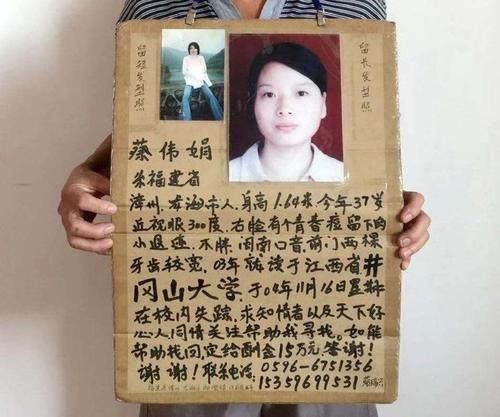 留短发型照
留长发型照
蔡伟娟
系福建省
漳州.龙海市人,身高1.64米 今年37岁
近视眼300度,右脸有个青春痘留下的
小疤迹,不胖,闽南口音,前门两颗
牙齿较宽,03年就读于江西省井
冈山大学,于04年11月16日星期
在校内失踪,求知情者以及天下好
心人同情关注帮助我寻找。如能
帮助找回定给酬金15万元答谢!
谢谢!联系电话:0596-6751356
15359699531